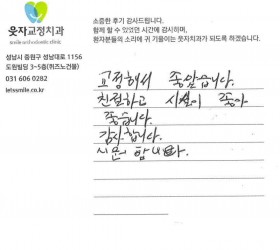 웃자교정치과
성남시 중원구 성남대로 1156
도원빌딩 3~5층(위즈노건물)
031 606 0282
letssmile.co.kr
소중한 후기 감사드립니다.
함께 할 수 있었던 시간에 감사하며,
환자분들의 소리에 귀 기울이는 웃자치과가 되도록 하겠습니다.
교정해서 좋았습니다.
친절하고 시설이 좋아
좋습니다.
감사합니다.